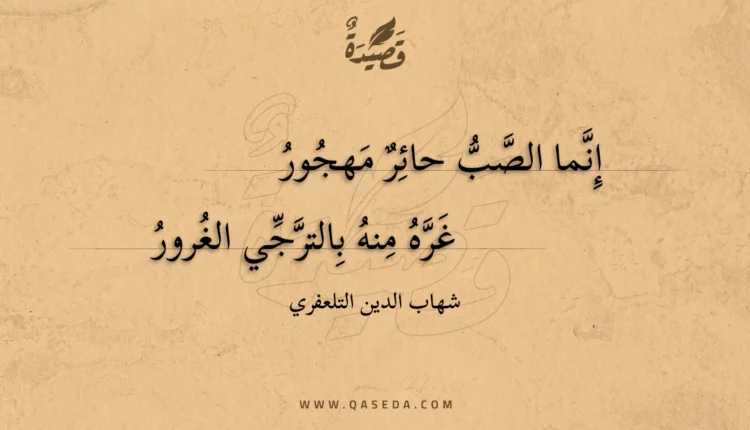 قَصِيْدَةٌ
إِنَّما الصَّبُّ حائِرٌ مَهجُورُ
غَرَّهُ مِنهُ بِالترَّجِّي الغُرورُ
شهاب الدين التلعفري
WWW.QASEDA.COM